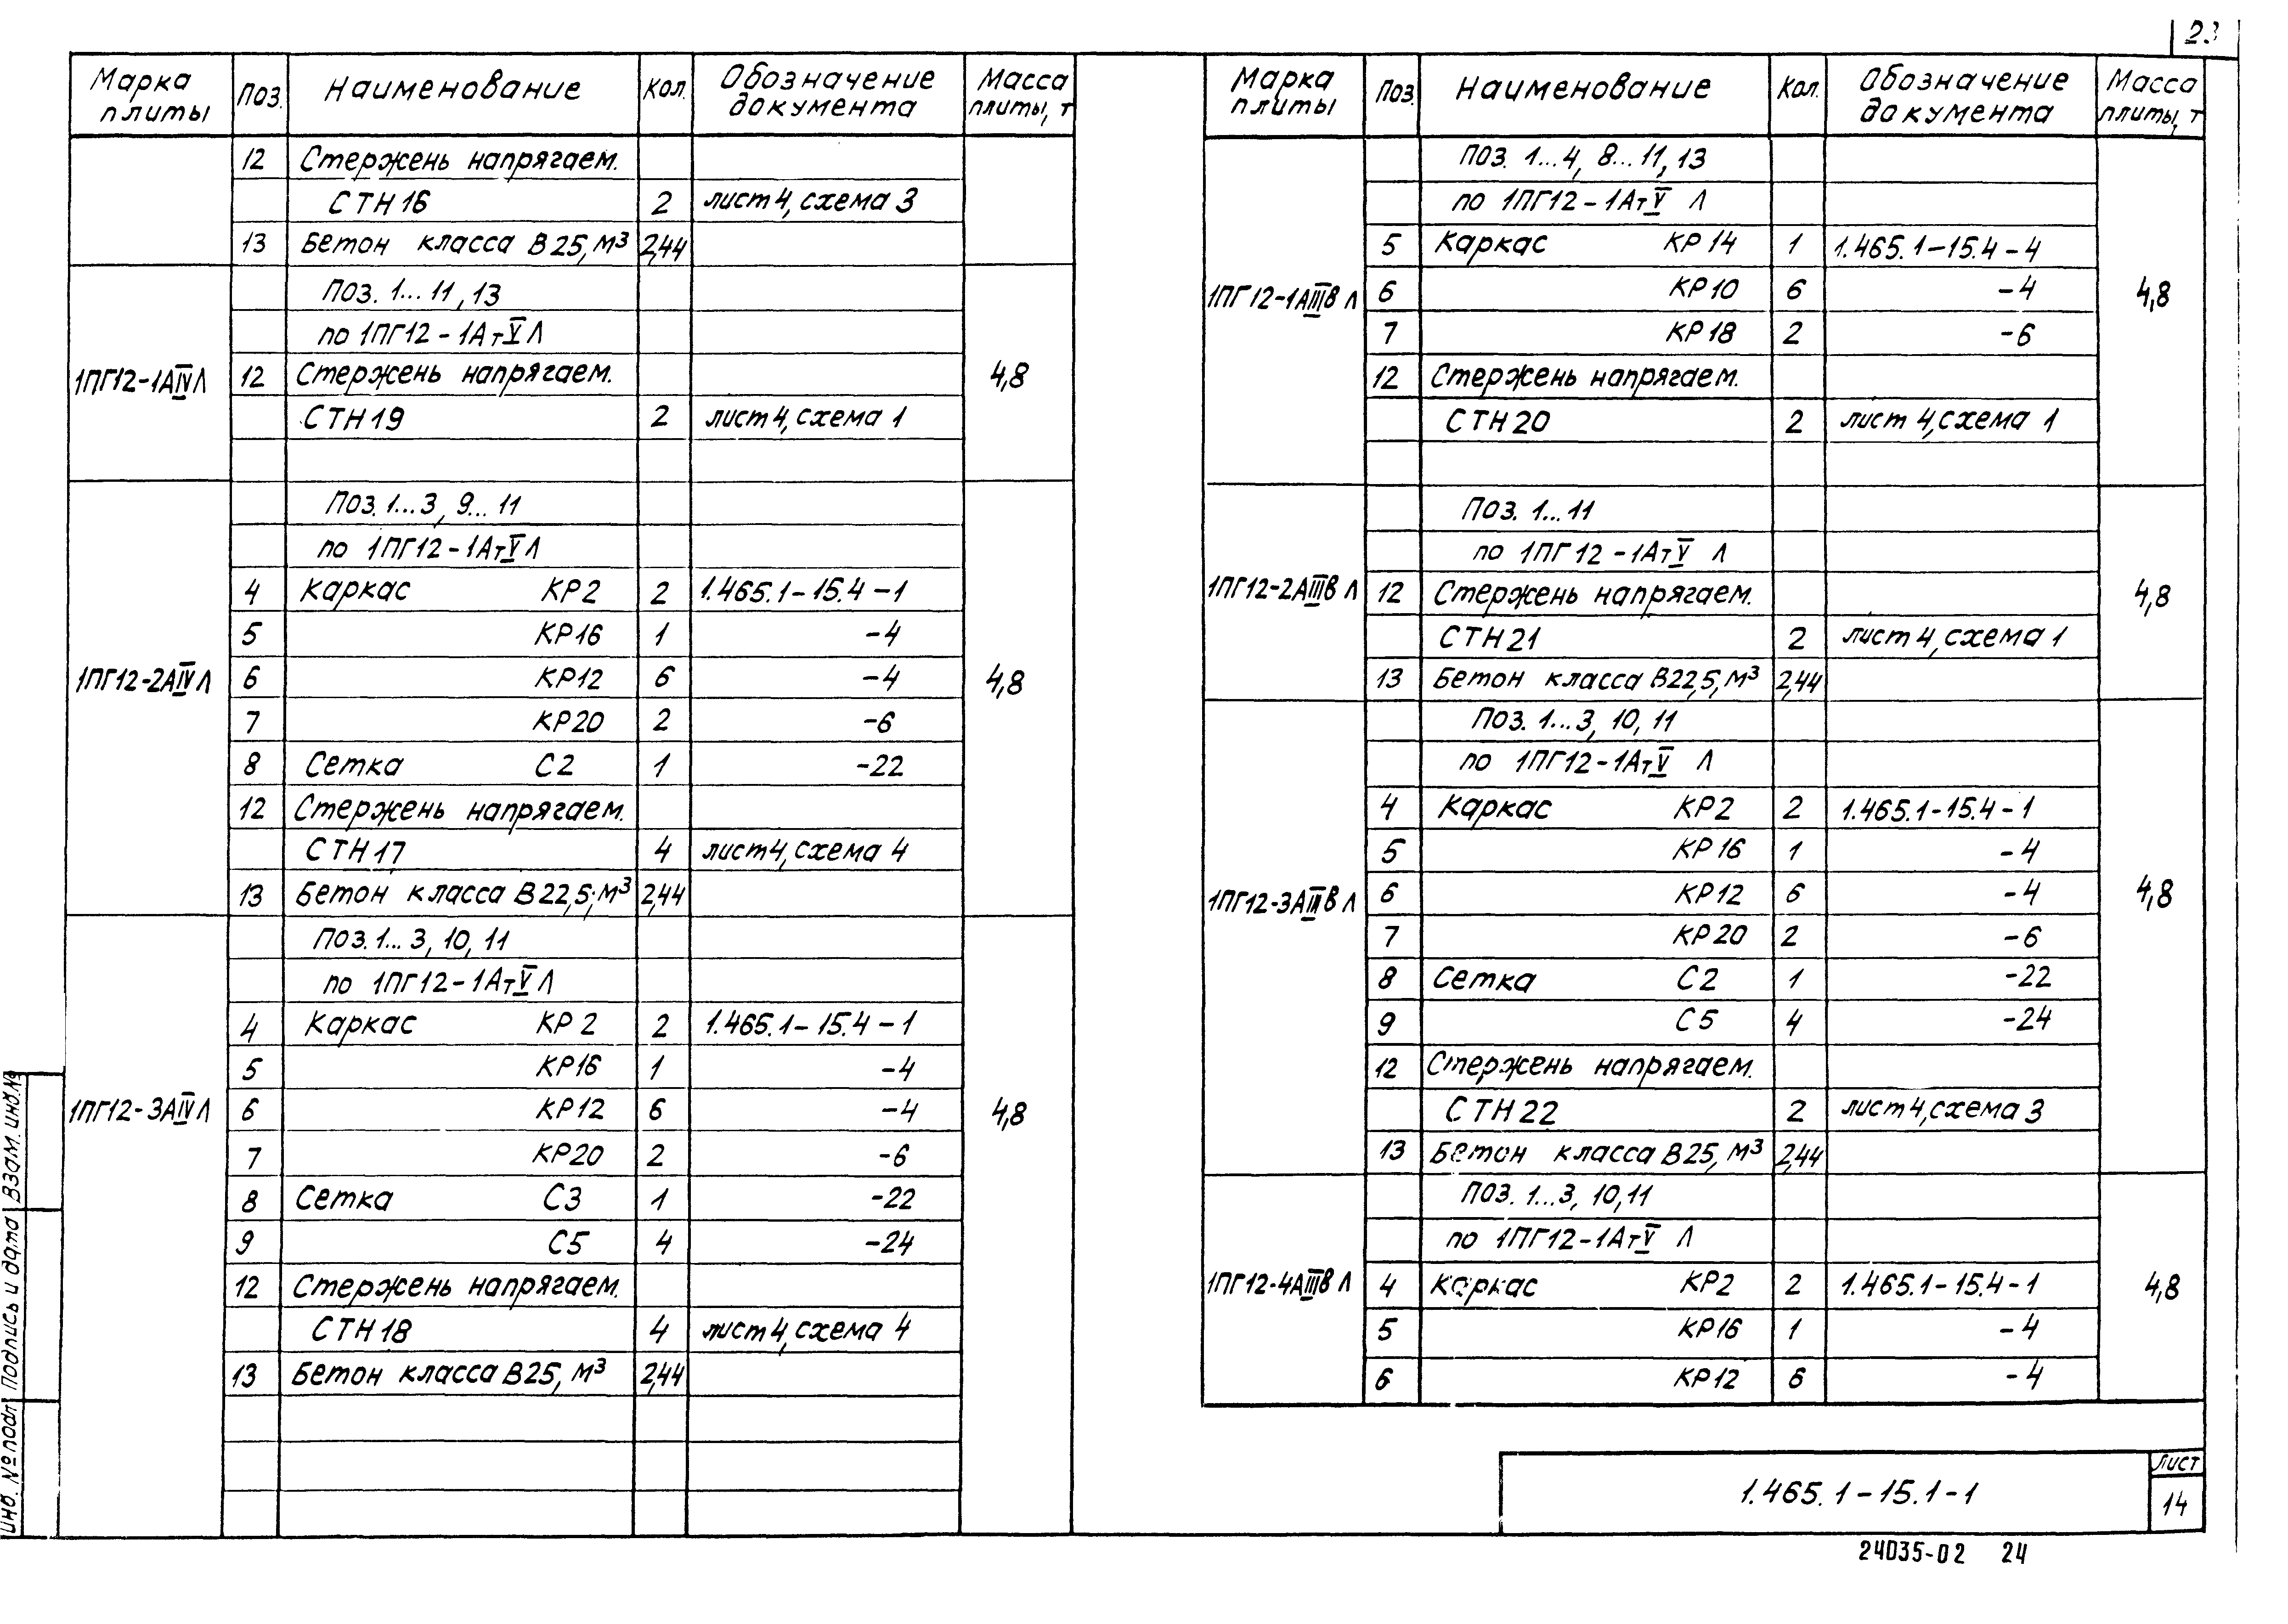 23
Марка плиты Поз. Наименование Кол. Обозначение документа Масса плиты, т
12 Стержень напрягаем.
СТН16 2 лист 4, схема 3
13 Бетон класса В25, м³ 2,44
Поз. 1...11, 13
по 1ПГ12-1АтV Л
1ПГ12-1АIV Л 12 Стержень напрягаем. 4,8
СТН19 2 лист 4, схема 1
Поз. 1...3, 9...11
по 1ПГ12-1АтV Л
4 Каркас КР2 2 1.465.1-15.4-1
5 КР16 1 -4
1ПГ12-2АIV Л 6 КР12 6 -4 4,8
7 КР20 2 -6
8 Сетка С2 1 -22
12 Стержень напрягаем.
СТН17 4 лист 4, схема 4
13 Бетон класса В22,5, м³ 2,44
Поз. 1...3, 10, 11
по 1ПГ12-1АтV Л
4 Каркас КР2 2 1.465.1-15.4-1
5 КР16 1 -4
1ПГ12-3АIV Л 6 КР12 6 -4 4,8
7 КР20 2 -6
8 Сетка С3 1 -22
9 С5 4 -24
12 Стержень напрягаем.
СТН18 4 лист 4, схема 4
13 Бетон класса В25, м³ 2,44
Марка плиты Поз. Наименование Кол. Обозначение документа Масса плиты, т
Поз. 1...4, 8...11, 13
по 1ПГ12-1АтV Л
5 Каркас КР14 1 1.465.1-15.4-4
1ПГ12-1АIIIв Л 6 КР10 6 -4 4,8
7 КР18 2 -6
12 Стержень напрягаем.
СТН20 2 лист 4, схема 1
Поз. 1...11
по 1ПГ12-1АтV Л
1ПГ12-2АIIIв Л 12 Стержень напрягаем. 4,8
СТН21 2 лист 4, схема 1
13 Бетон класса В22,5, м³ 2,44
Поз. 1...3, 10, 11
по 1ПГ12-1АтV Л
4 Каркас КР2 2 1.465.1-15.4-1
5 КР16 1 -4
1ПГ12-3АIIIв Л 6 КР12 6 -4 4,8
7 КР20 2 -6
8 Сетка С2 1 -22
9 С5 4 -24
12 Стержень напрягаем.
СТН22 2 лист 4, схема 3
13 Бетон класса В25, м³ 2,44
Поз. 1...3, 10, 11
по 1ПГ12-1АтV Л
1ПГ12-4АIIIв Л 4 Каркас КР2 2 1.465.1-15.4-1 4,8
5 КР16 1 -4
6 КР12 6 -4
1.465.1-15.1-1
Лист
14
24035-02 24
Инв. № подл Подпись и дата Взам. инв. №